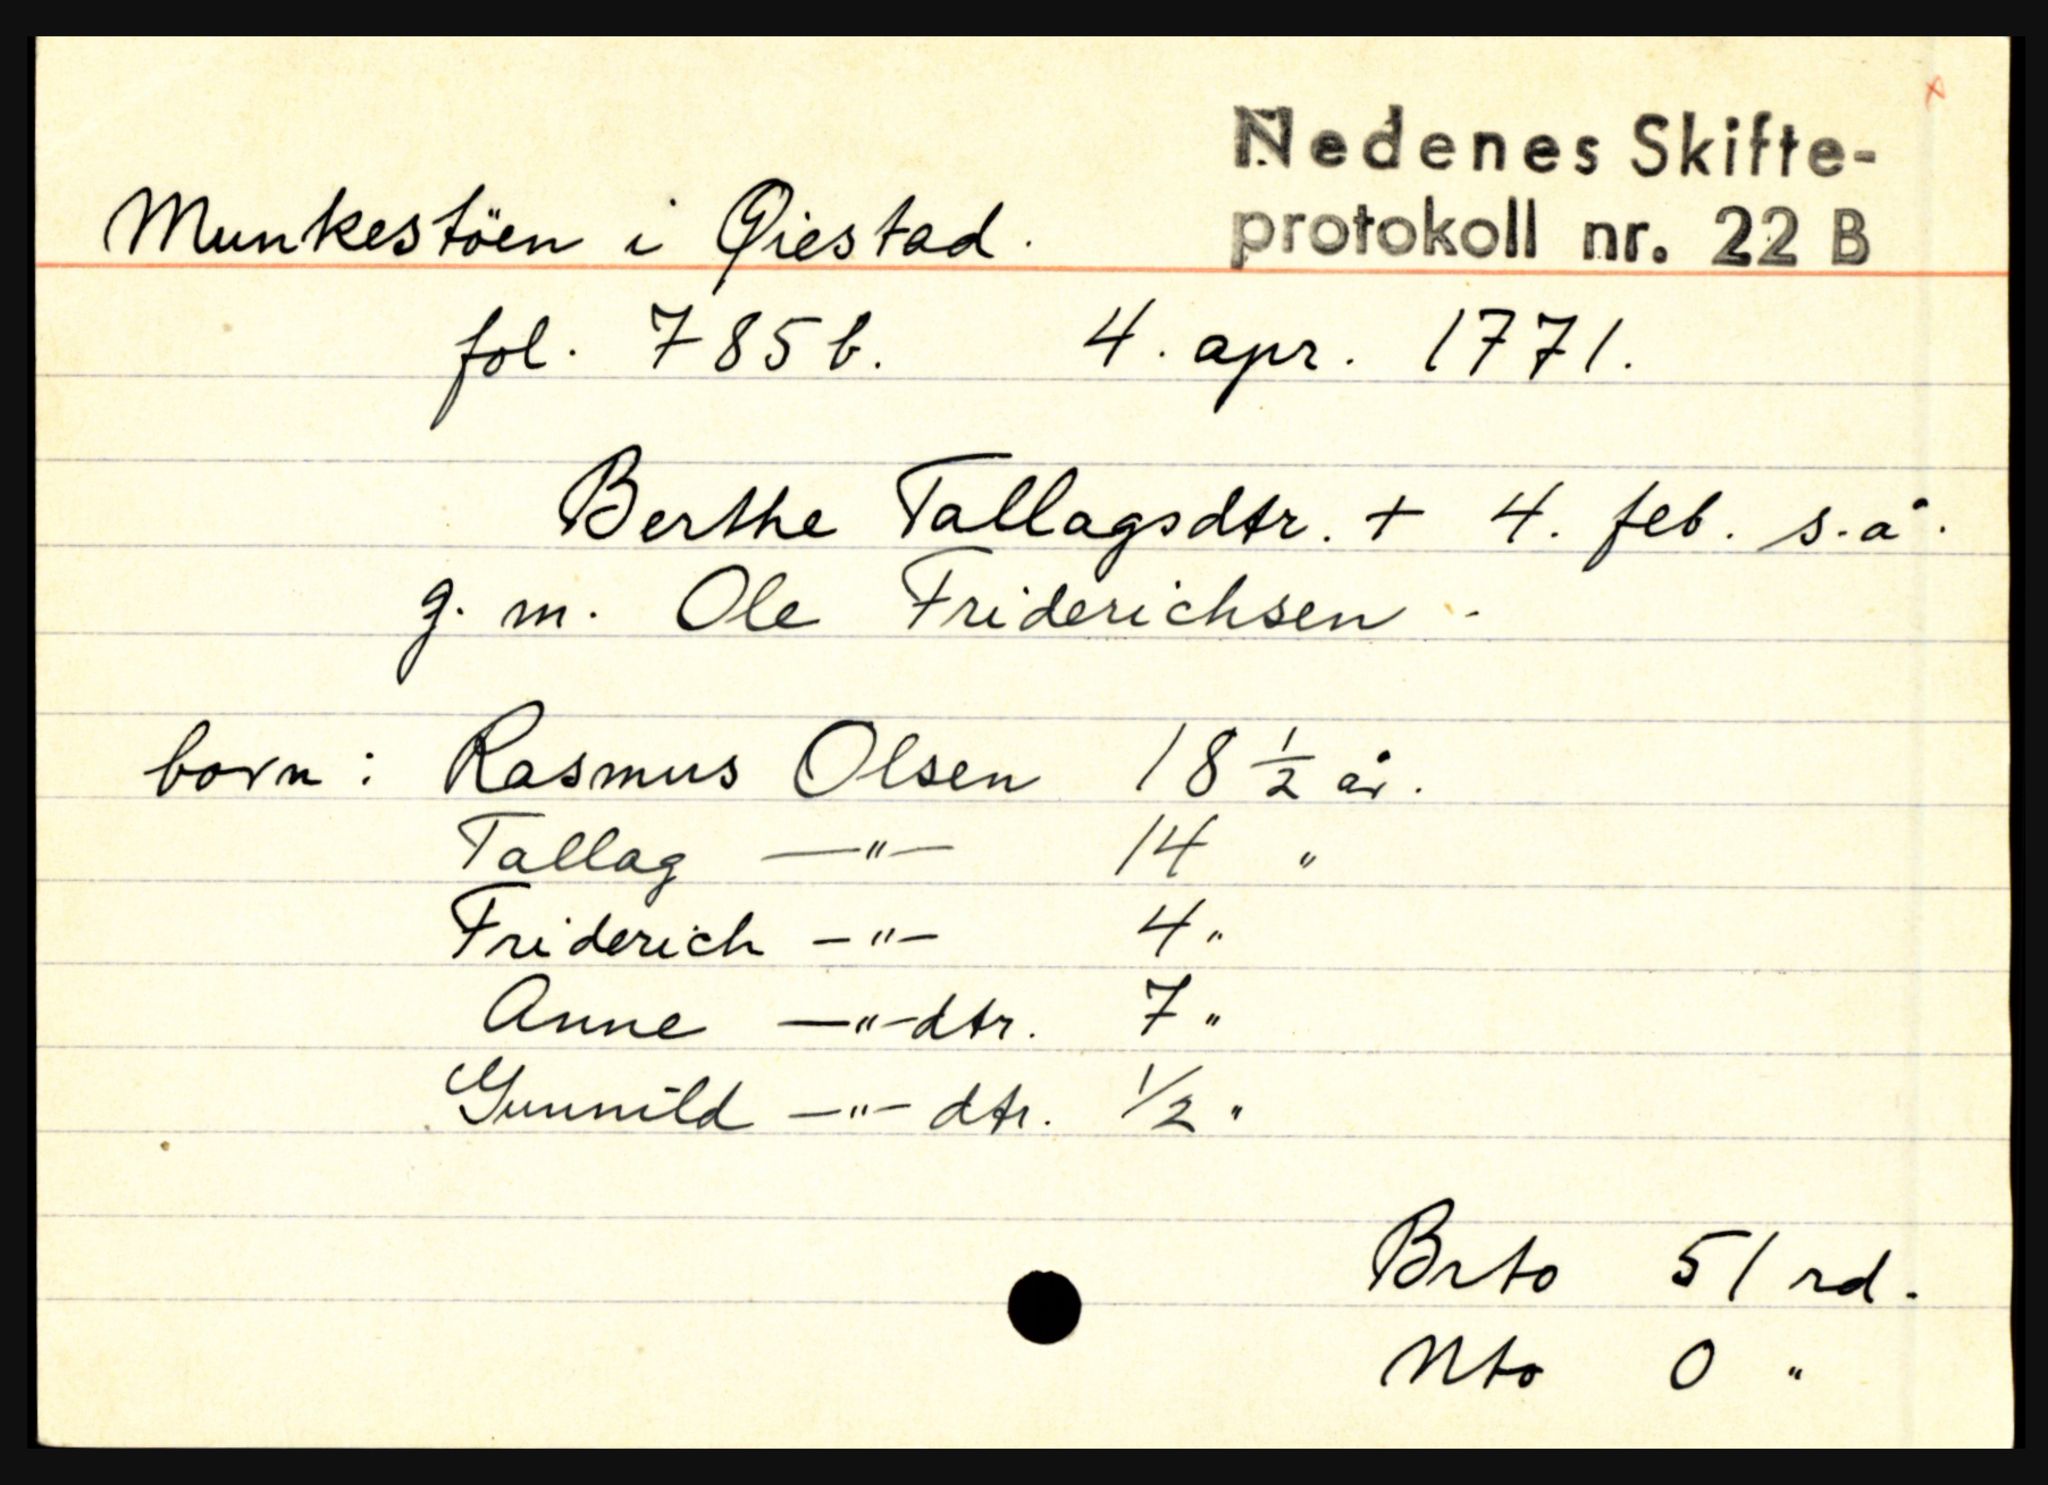 Nedenes Skifte-
protokoll nr. 22 B
Munkestöen i Øiestad.
fol. 785 b. 4. apr. 1771.
Berthe Tallagsdtr. + 4. feb. s.å.
g. m. Ole Friderichsen -
born: Rasmus Olsen 18 1/2 år.
Tallag —"— 14 "
Friderich —"— 4 "
Anne —"—dtr. 7 "
Gunnild —"— dtr. 1/2 "
Brto 51 rd.
Nto 0 "